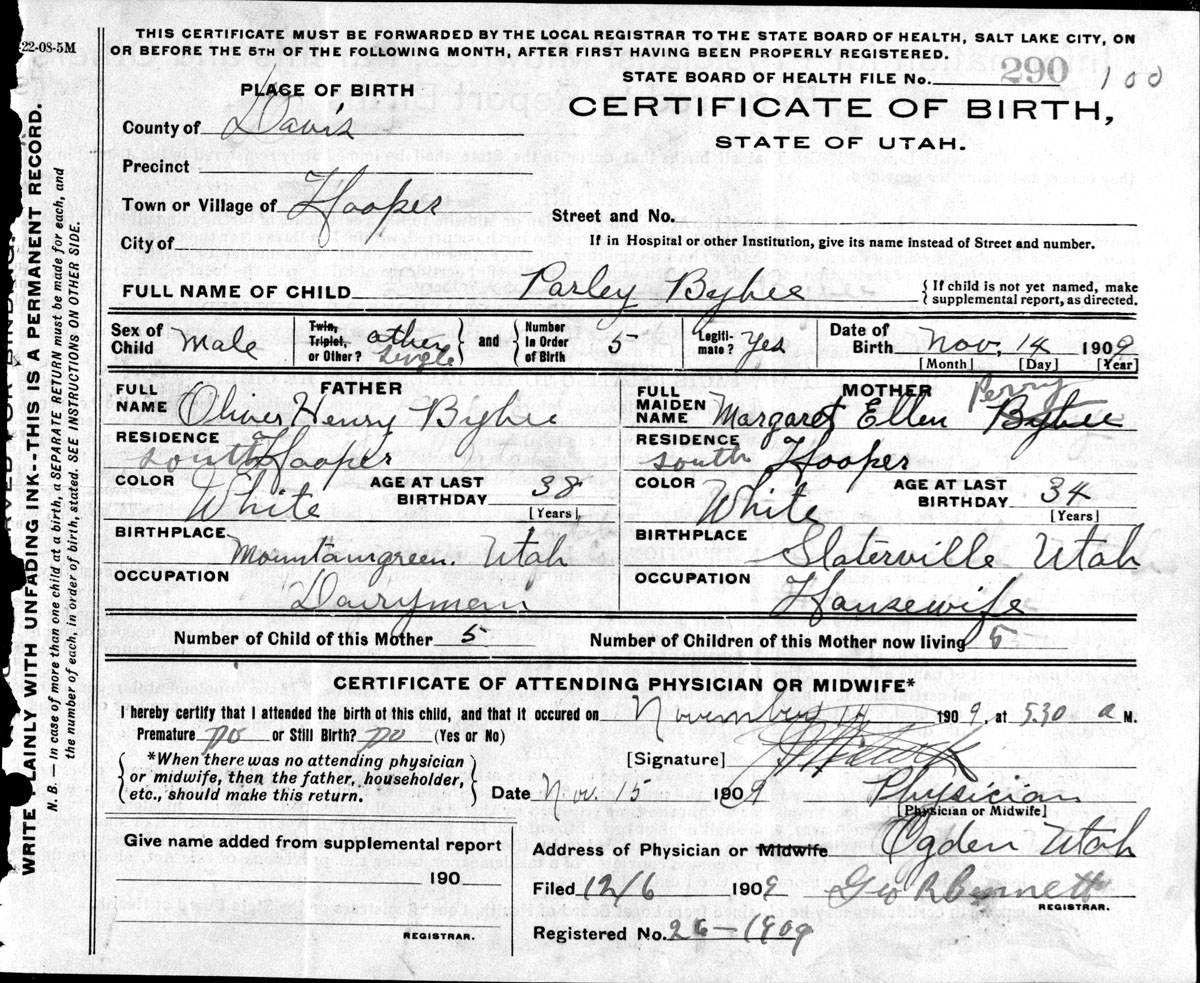 22-08-5M
THIS CERTIFICATE MUST BE FORWARDED BY THE LOCAL REGISTRAR TO THE STATE BOARD OF HEALTH, SALT LAKE CITY, ON
OR BEFORE THE 5TH OF THE FOLLOWING MONTH, AFTER FIRST HAVING BEEN PROPERLY REGISTERED.
STATE BOARD OF HEALTH FILE No. 290 100
PLACE OF BIRTH
CERTIFICATE OF BIRTH,
STATE OF UTAH.
County of Davis
Precinct
Town or Village of Hooper
Street and No.
City of
If in Hospital or other Institution, give its name instead of Street and number.
FULL NAME OF CHILD Parley Bybee
{ If child is not yet named, make
supplemental report, as directed.
Sex of Child Male
Twin, Triplet, or Other? other single
and
Number in Order of Birth 5
Legiti- mate? Yes
Date of Birth Nov, 14 1909
[Month] [Day] [Year]
FATHER
FULL NAME Oliver Henry Bybee
RESIDENCE South Hooper
COLOR White
AGE AT LAST BIRTHDAY 38
[Years]
BIRTHPLACE Mountaingreen. Utah
OCCUPATION Dairyman
MOTHER
FULL MAIDEN NAME Margaret Ellen Bybee Perry
RESIDENCE South Hooper
COLOR White
AGE AT LAST BIRTHDAY 34
[Years]
BIRTHPLACE Slaterville Utah
OCCUPATION Housewife
Number of Child of this Mother 5
Number of Children of this Mother now living 5
CERTIFICATE OF ATTENDING PHYSICIAN OR MIDWIFE*
I hereby certify that I attended the birth of this child, and that it occured on November 14 1909, at 530 a M.
Premature no or Still Birth? no (Yes or No)
[Signature]
*When there was no attending physician
or midwife, then the father, householder,
etc., should make this return.
Date Nov. 15 1909
Physician
[Physician or Midwife]
Give name added from supplemental report
190
REGISTRAR.
Address of Physician or Midwife Ogden Utah
Filed 12/6 1909 Geo R Bennett
REGISTRAR.
Registered No. 26-1909
WRITE PLAINLY WITH UNFADING INK--THIS IS A PERMANENT RECORD.
N. B. — In case of more than one child at a birth, a SEPARATE RETURN must be made for each, and
the number of each, in order of birth, stated. SEE INSTRUCTIONS ON OTHER SIDE.